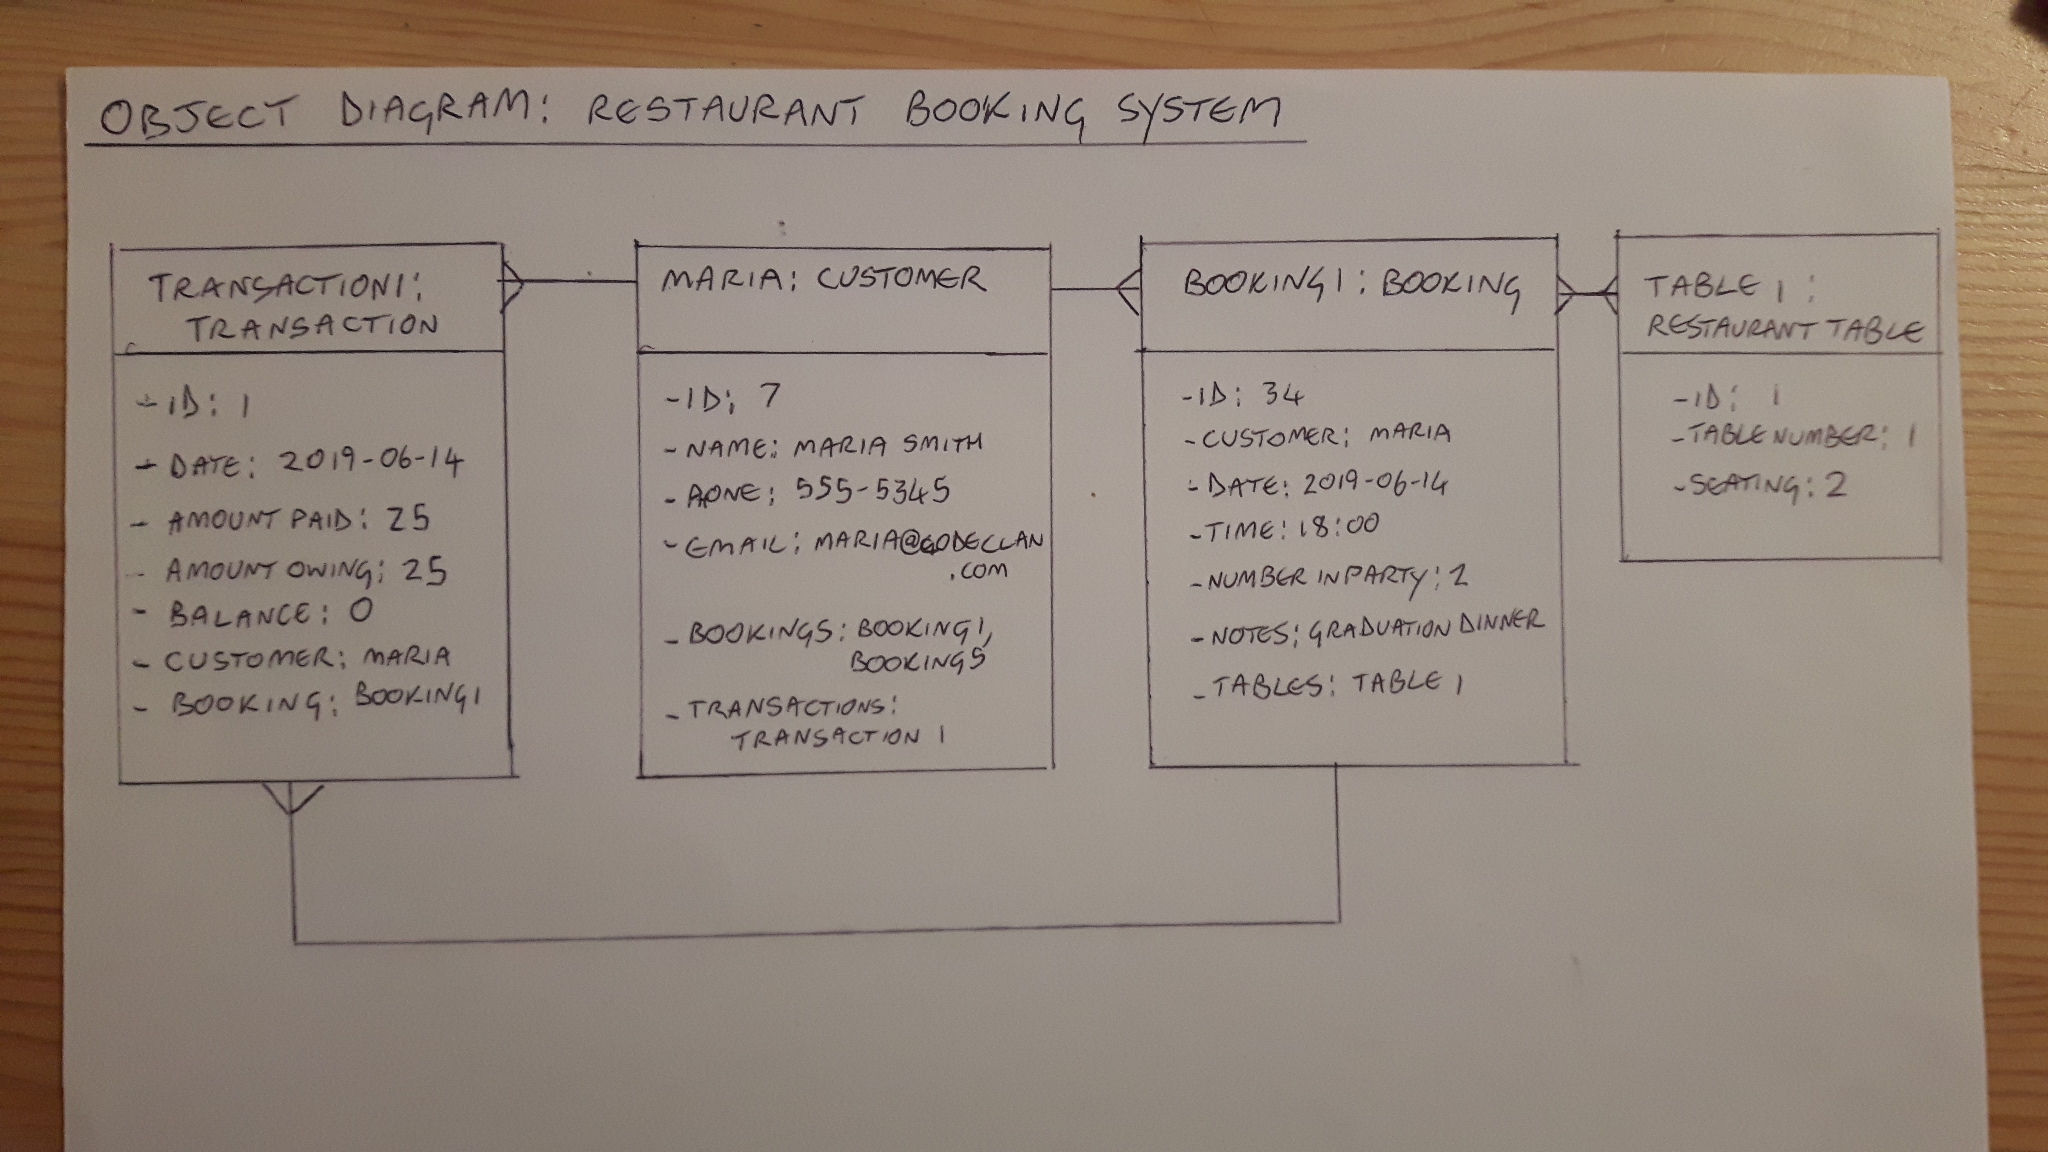 OBJECT DIAGRAM: RESTAURANT BOOKING SYSTEM
TRANSACTION1:
TRANSACTION
- ID: 1
- DATE: 2019-06-14
- AMOUNT PAID: 25
- AMOUNT OWING: 25
- BALANCE: 0
- CUSTOMER: MARIA
- BOOKING: BOOKING1
MARIA: CUSTOMER
- ID: 7
- NAME: MARIA SMITH
- PHONE: 555-5345
- EMAIL: MARIA@CODECLAN
.COM
- BOOKINGS: BOOKING1,
BOOKING5
- TRANSACTIONS:
TRANSACTION 1
BOOKING1: BOOKING
- ID: 34
- CUSTOMER: MARIA
- DATE: 2019-06-14
- TIME: 18:00
- NUMBER IN PARTY: 2
- NOTES: GRADUATION DINNER
- TABLES: TABLE 1
TABLE 1:
RESTAURANT TABLE
- ID: 1
- TABLE NUMBER: 1
- SEATING: 2